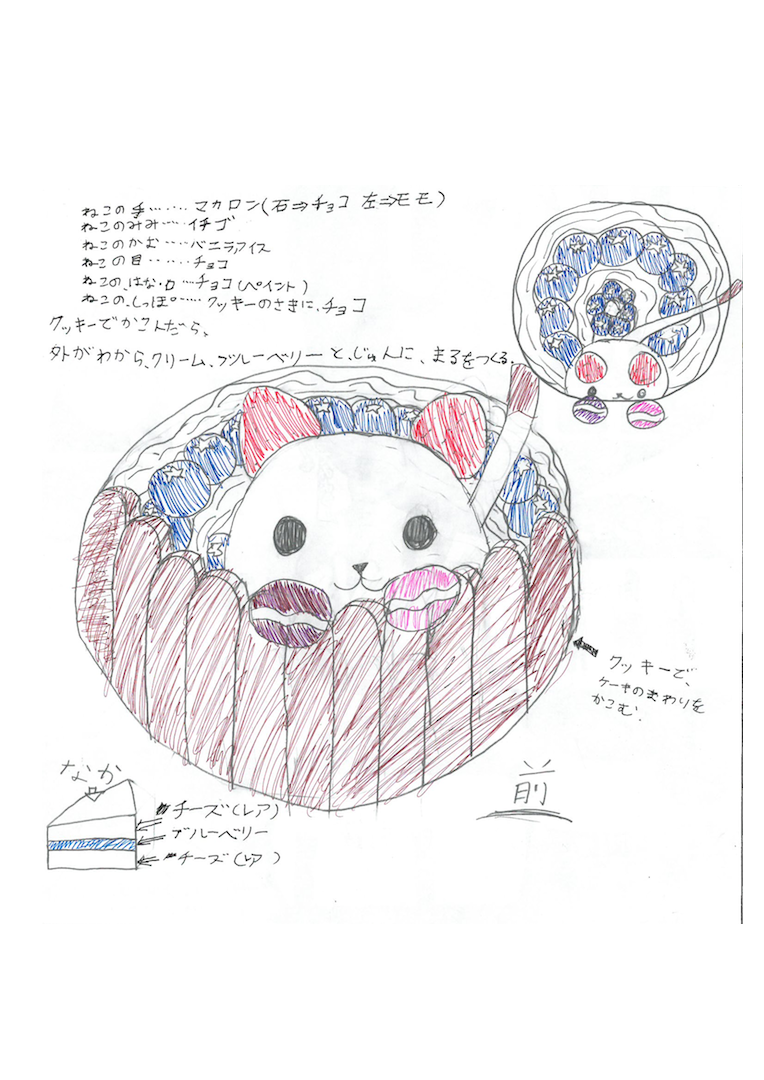 ねこの手……マカロン(右⇒チョコ 左⇒モモ)
ねこのみみ……イチゴ
ねこのかお……バニラアイス
ねこの目……チョコ
ねこの、はな・口…チョコ(ペイント)
ねこの、しっぽ……クッキーのさきに、チョコ
クッキーでかこんだら、
外がわから、クリーム、ブルーベリーと、じゅんに、まるをつくる。
クッキーで、
ケーキのまわりを
かこむ。
前
なか
チーズ(レア)
ブルーベリー
チーズ(レア)